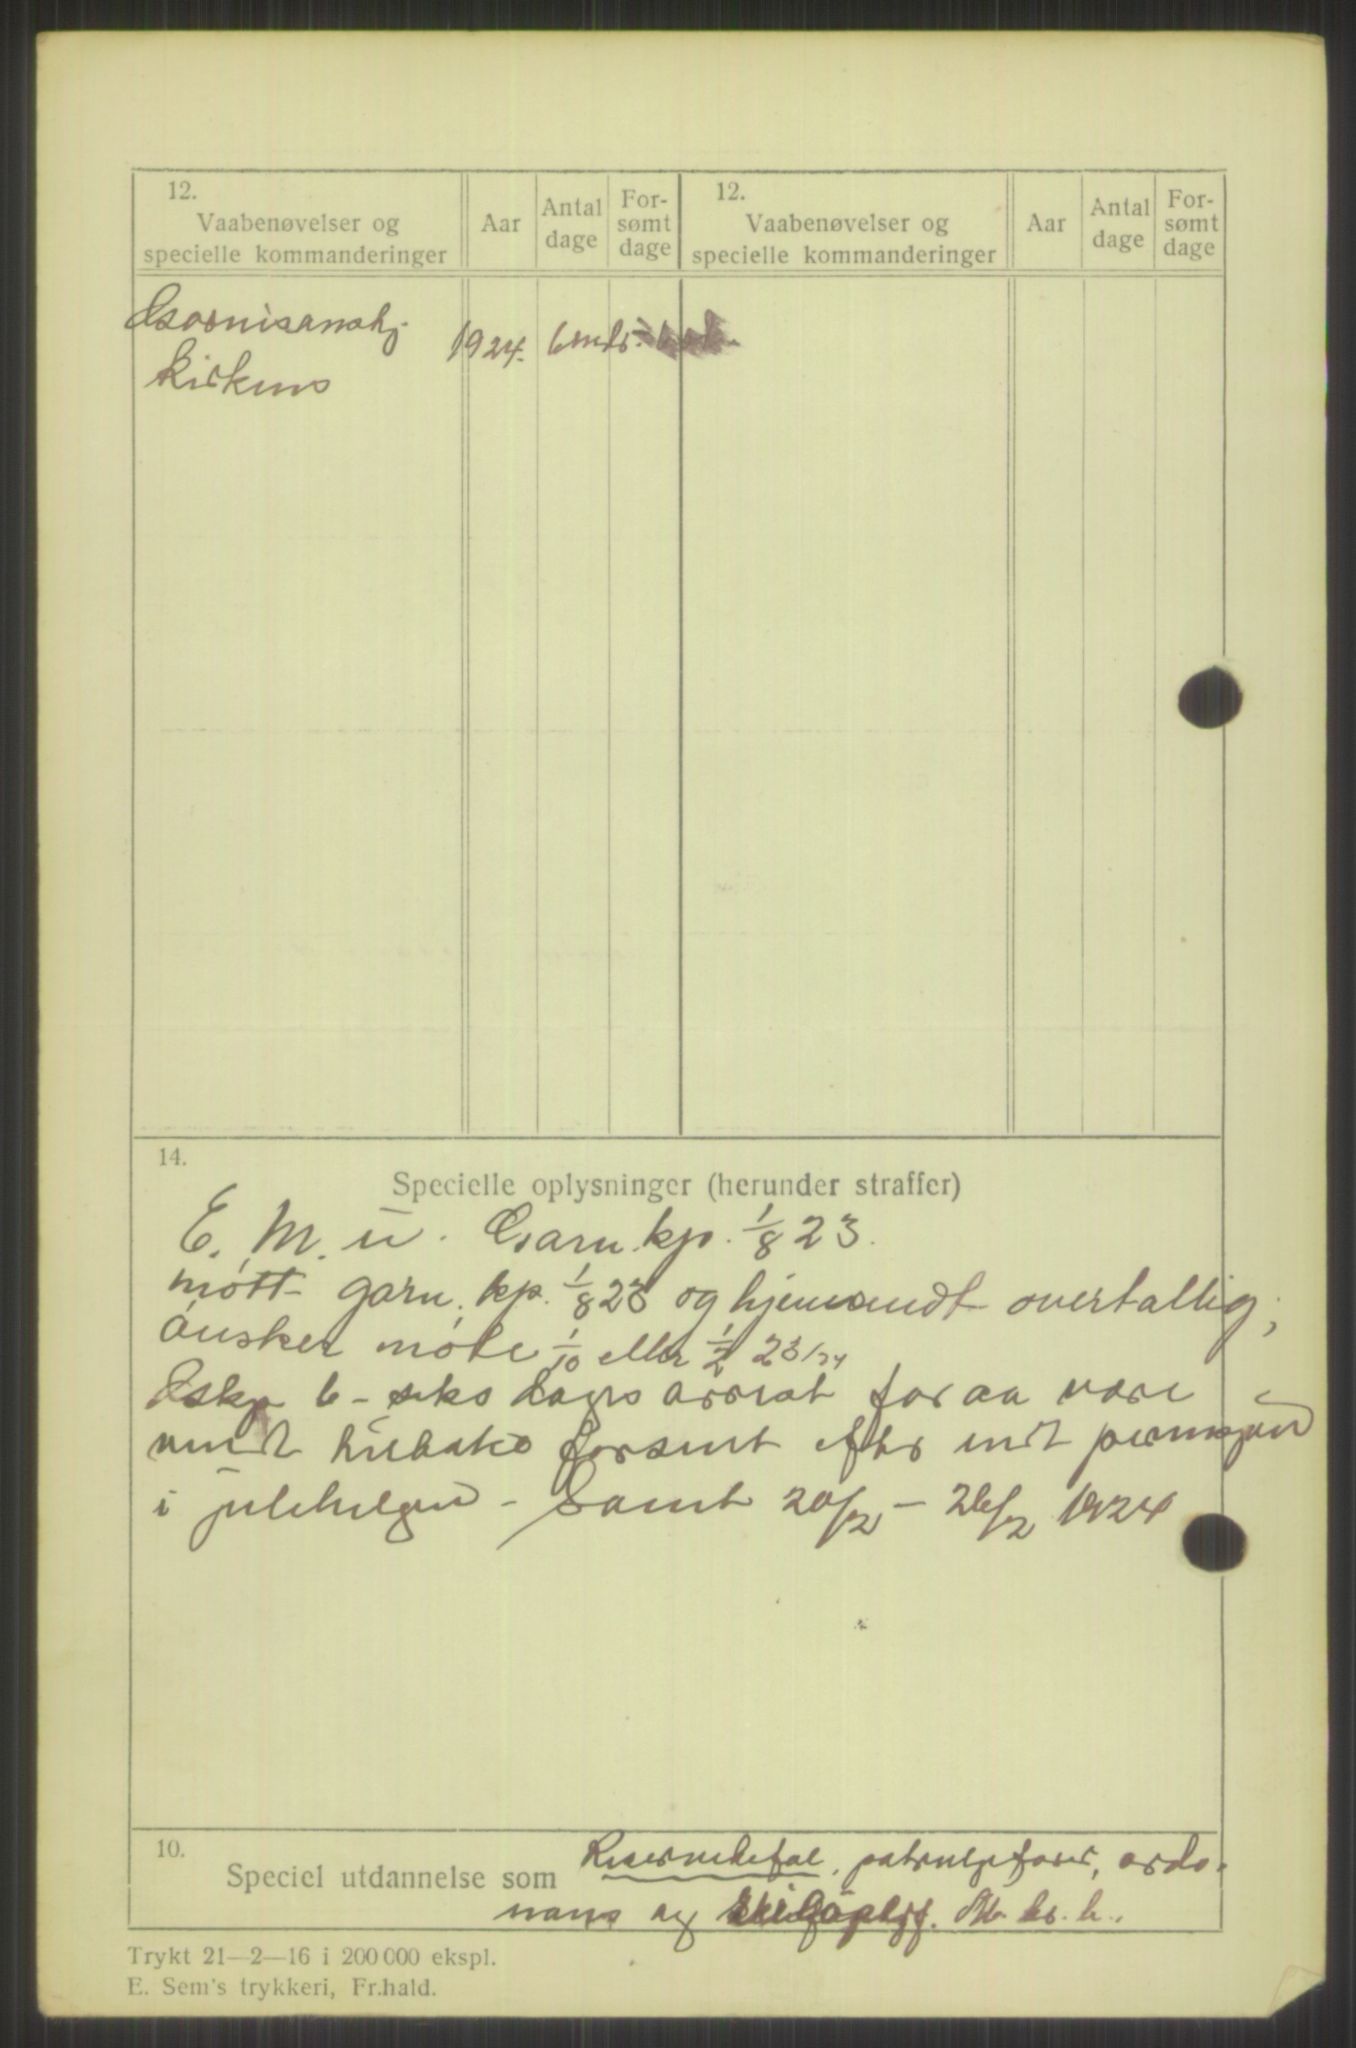 12.
Vaabenøvelser og
specielle kommanderinger
Aar
Antal
dage
For-
sømt
dage
12.
Vaabenøvelser og
specielle kommanderinger
Aar
Antal
dage
For-
sømt
dage
Garnisonskp.
Kirkenes
1924. 6 mdr.
14.
Specielle oplysninger (herunder straffer)
E. M. u. Garn.kp. 1/8 23.
møtt garn. kp. 1/8 23 og hjemsendt overtallig;
ønsker møte 1/10 eller 1/2 23/24
6 - seks dagers arrest for aa være
vendt tilbake for sent efter endt permisjon
i julehelgen - Samt 20/2 - 26/2 1924
10.
Speciel utdannelse som
patruljefører, ordo-
nans og
Trykt 21—2—16 i 200 000 ekspl.
E. Sem's trykkeri, Fr.hald.